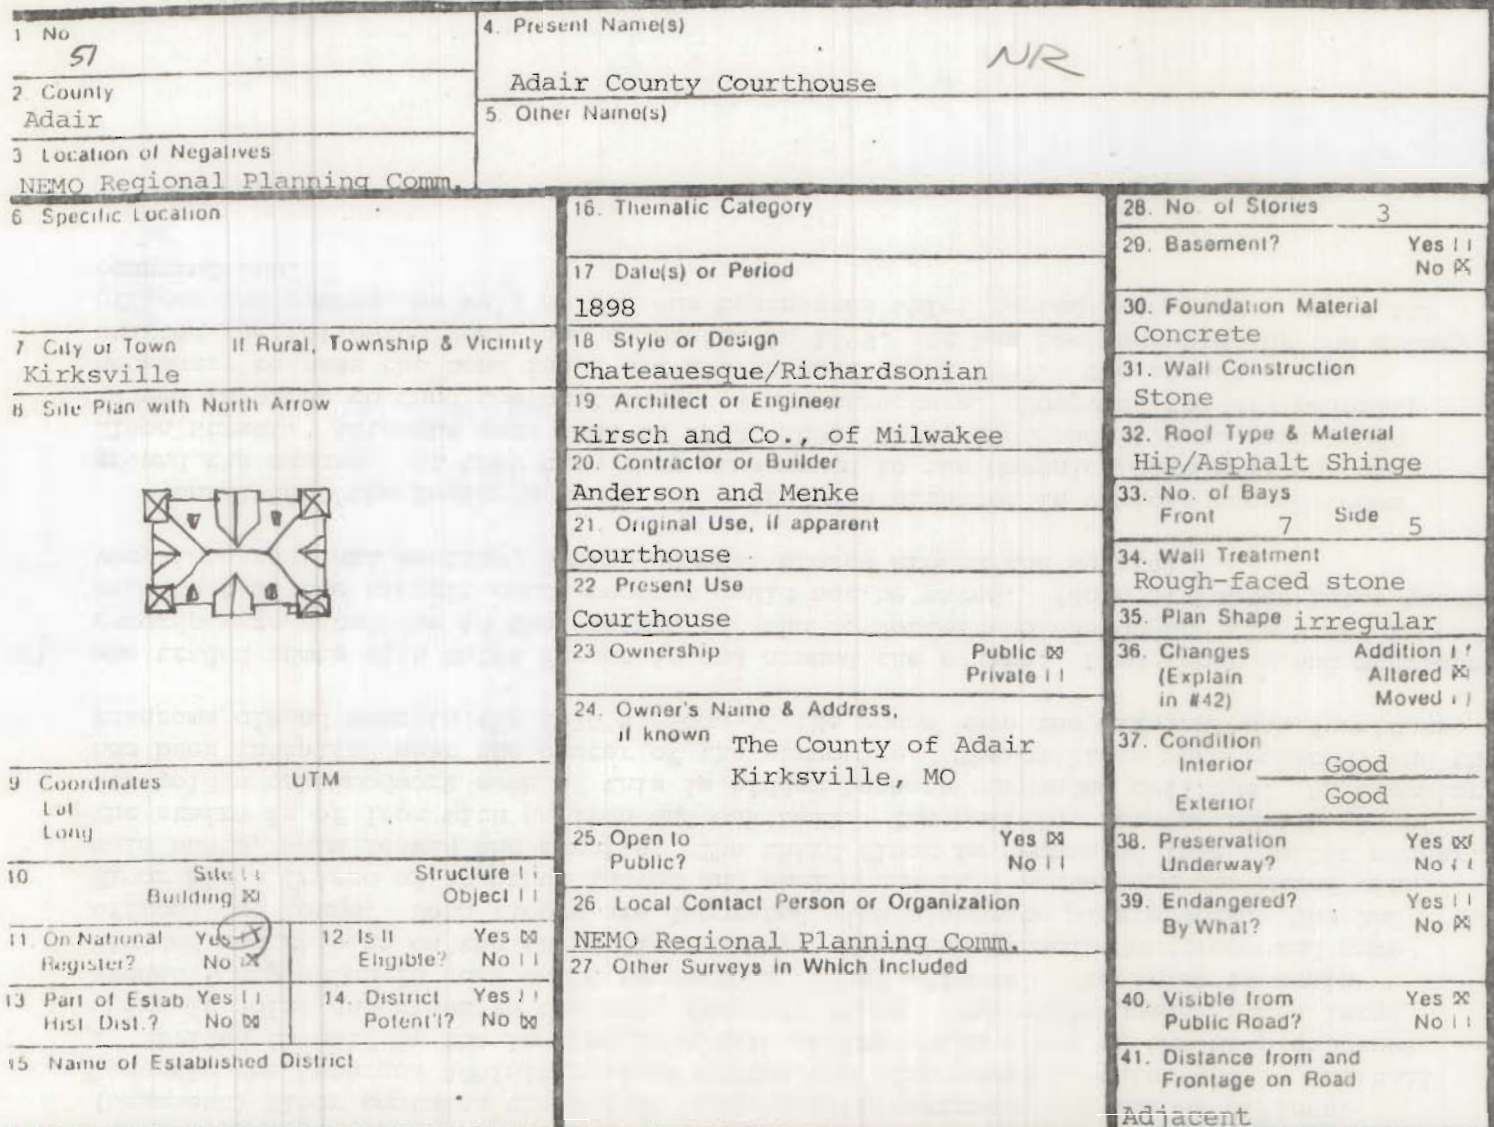 1 No
51
2. County
Adair
3 Location of Negatives
NEMO Regional Planning Comm.
4. Present Name(s)
NR
Adair County Courthouse
5. Other Name(s)
6 Specific Location
7 City or Town If Rural, Township & Vicinity
Kirksville
8 Site Plan with North Arrow
9 Coordinates UTM
Lat
Long
10 Site Structure
Building Object
11. On National Yes
Register? No
12 Is It Yes
Eligible? No
13 Part of Estab Yes
Hist. Dist.? No
14. District Yes
Potent'l? No
15 Name of Established District
16. Thematic Category
17 Date(s) or Period
1898
18 Style or Design
Chateauesque/Richardsonian
19. Architect or Engineer
Kirsch and Co., of Milwakee
20. Contractor or Builder
Anderson and Menke
21. Original Use, if apparent
Courthouse
22. Present Use
Courthouse
23 Ownership Public
Private
24. Owner's Name & Address,
if known The County of Adair
Kirksville, MO
25. Open to Yes
Public? No
26. Local Contact Person or Organization
NEMO Regional Planning Comm.
27. Other Surveys in Which Included
28. No. of Stories 3
29. Basement? Yes
No
30. Foundation Material
Concrete
31. Wall Construction
Stone
32. Roof Type & Material
Hip/Asphalt Shinge
33. No. of Bays
Front 7 Side 5
34. Wall Treatment
Rough-faced stone
35. Plan Shape irregular
36. Changes Addition
(Explain Altered
in #42) Moved
37. Condition
Interior Good
Exterior Good
38. Preservation Yes
Underway? No
39. Endangered? Yes
By What? No
40. Visible from Yes
Public Road? No
41. Distance from and
Frontage on Road
Adjacent